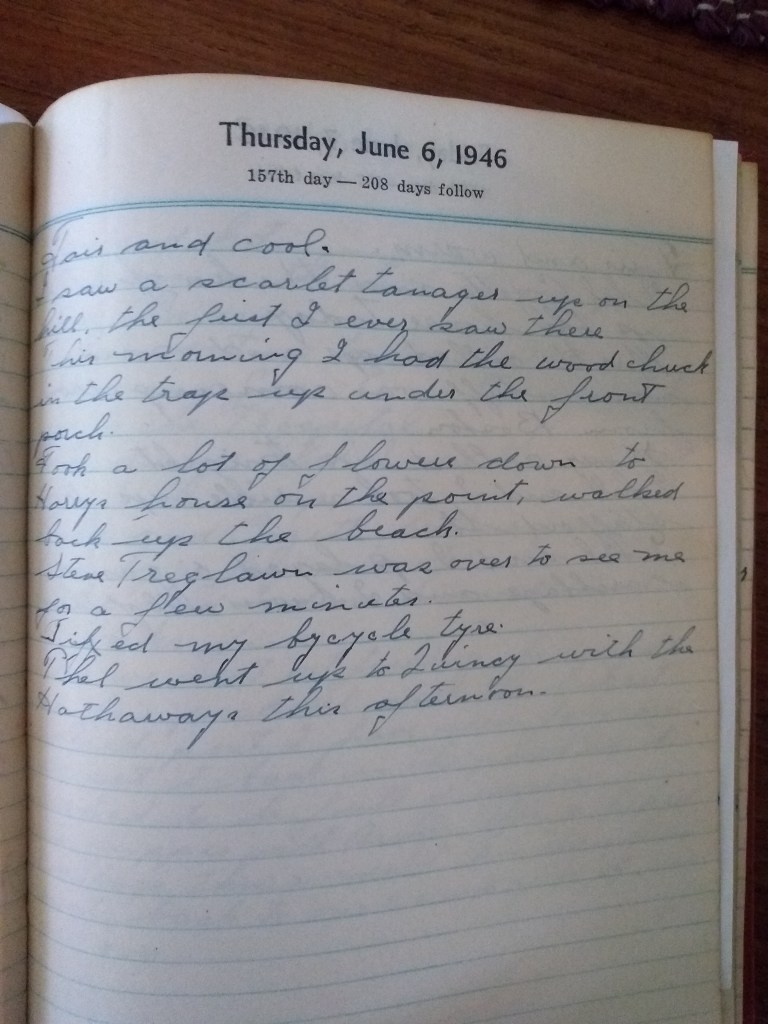 Thursday, June 6, 1946
157th day — 208 days follow
Fair and cool.
I saw a scarlet tanager up on the
hill, the first I ever saw there
This morning I had the wood chuck
in the trap up under the front
porch.
Took a lot of flowers down to
house on the point, walked
back up the beach.
Steve Treglawn was over to see me
for a few minutes.
Fixed my bycycle tyre.
Thel went up to Quincy with the
Hathaways this afternoon.